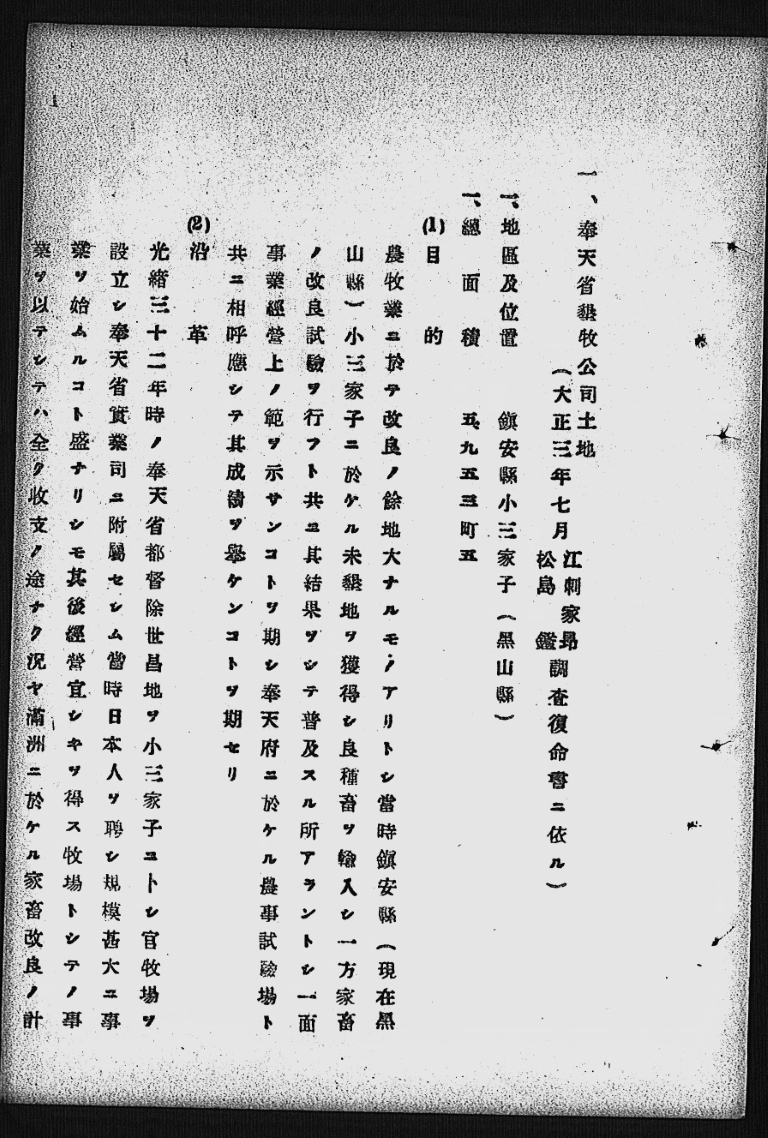 一、奉天省墾牧公司土地
（大正三年七月 江刺家昂 松島鑑 調査復命書ニ依ル）
一、地區及位置 鎭安縣小三家子（黑山縣）
一、總面積 五、九五三町五
(1)目的
農牧業ニ於テ改良ノ餘地大ナルモノアリトシ當時鎭安縣（現在黑
山縣）小三家子ニ於ケル未墾地ヲ獲得シ良種畜ヲ輸入シ一方家畜
ノ改良試驗ヲ行フト共ニ其結果ヲシテ普及スル所アラントシ一面
事業經營上ノ範ヲ示サンコトヲ期シ奉天府ニ於ケル農事試驗場ト
共ニ相呼應シテ其成績ヲ擧ケンコトヲ期セリ
(2)沿革
光緖三十二年時ノ奉天省都督除世昌地ヲ小三家子ニトシ官牧場ヲ
設立シ奉天省實業司ニ附屬セシム當時日本人ヲ聘シ規模甚大ニ事
業ヲ始ムルコト盛ナリシモ其後經營宜シキヲ得ス牧場トシテノ事
業ヲ以テシテハ全ク收支ノ途ナク況ヤ滿洲ニ於ケル家畜改良ノ計
1